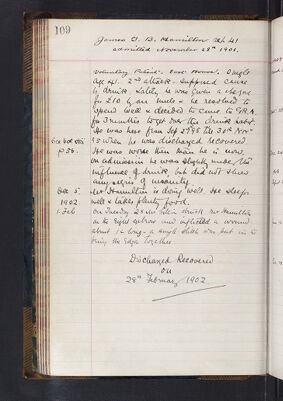 109
James G. B. Hamilton Age 41
admitted November 28th 1901.
Voluntary Patient. East House. Single
age 41. 2nd attack - supposed cause
is drink. Lately he was given a cheque
for £10 by an uncle & he resolved to
spend well & decided to come to
for 3 months to get over the drink habit.
He was here from Sep 27 95 till 30th Nov
95 when he was discharged recovered
He was worse than he is now
on admission he was slightly under the
influence of drink, but did not show
any signs of insanity.
p 58.
Dec 5. Mr Hamilton is doing well. He sleeps
well & takes plenty food.
1902
1 Feb On Tuesday Mr Hamilton
on the right eyebrow and inflicted a wound
about 1/2 long - a single stitch was put in to
bring the edges together
Discharged Recovered
on
28th February 1902